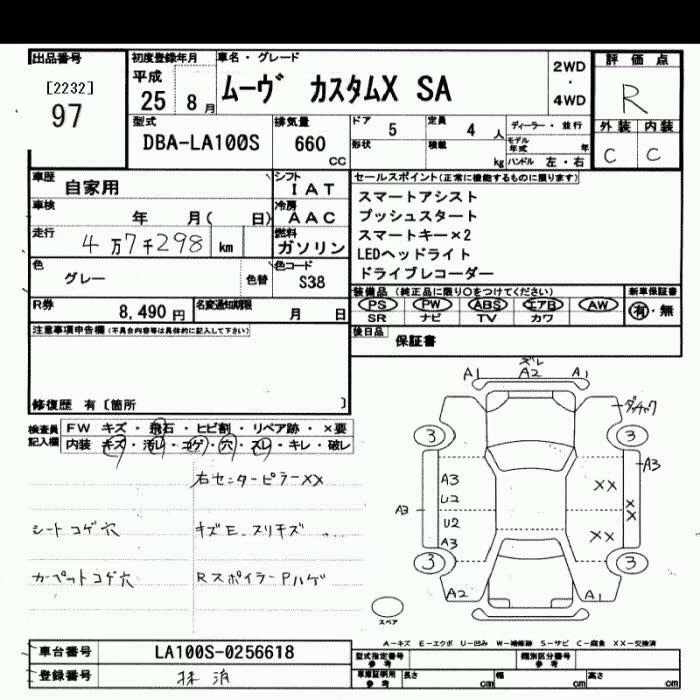 出品番号
[2232]
97
初度登録年月
平成
25 8 月
車名・グレード
ムーヴ カスタムX SA
2WD
・
4WD
評価点
R
外装 内装
C C
型式
DBA-LA100S
排気量
660
CC
ドア 5
定員 4 人
形状
積載 kg
ディーラー・並行
モデル年式 年
ハンドル 左・右
車歴 自家用
車検 年 月( 日)
走行 4万7千298 km
シフト
IAT
冷房
AAC
燃料
ガソリン
色 グレー
色替
色コード
S38
R券 8,490 円
名変通知期限 月 日
セールスポイント(正常に機能するものに限ります)
スマートアシスト
プッシュスタート
スマートキー×2
LEDヘッドライト
ドライブレコーダー
装備品(純正品に限り○をつけてください)
PS PW ABS エアB AW
SR ナビ TV カワ
新車保証書
有・無
後日品
保証書
注意事項申告欄(不具合内容等は具体的に記入して下さい)
修復歴 有〔箇所 〕
検査員
記入欄
FW キズ・飛石・ヒビ割・リペア跡・×要
内装 キズ・汚レ・コゲ・穴・スレ・キレ・破レ
右センターピラーXX
シートコゲ穴
キズE.スリキズ
カーペットコゲ穴
RスポイラーPハゲ
ズレ
A1 A2 A1
3 3
A3
A3
U2
U2
A3
A3
XX
XX
XX
3 3
A2 A1
スペア
A-キズ E-エクボ U-凹み W-補修跡 S-サビ C-腐食 XX-交換済
車台番号 LA100S-0256618
登録番号 抹消
型式指定番号
参考
類別区分番号
参考
車庫証明用
参考
長さ cm
幅 cm
高さ cm